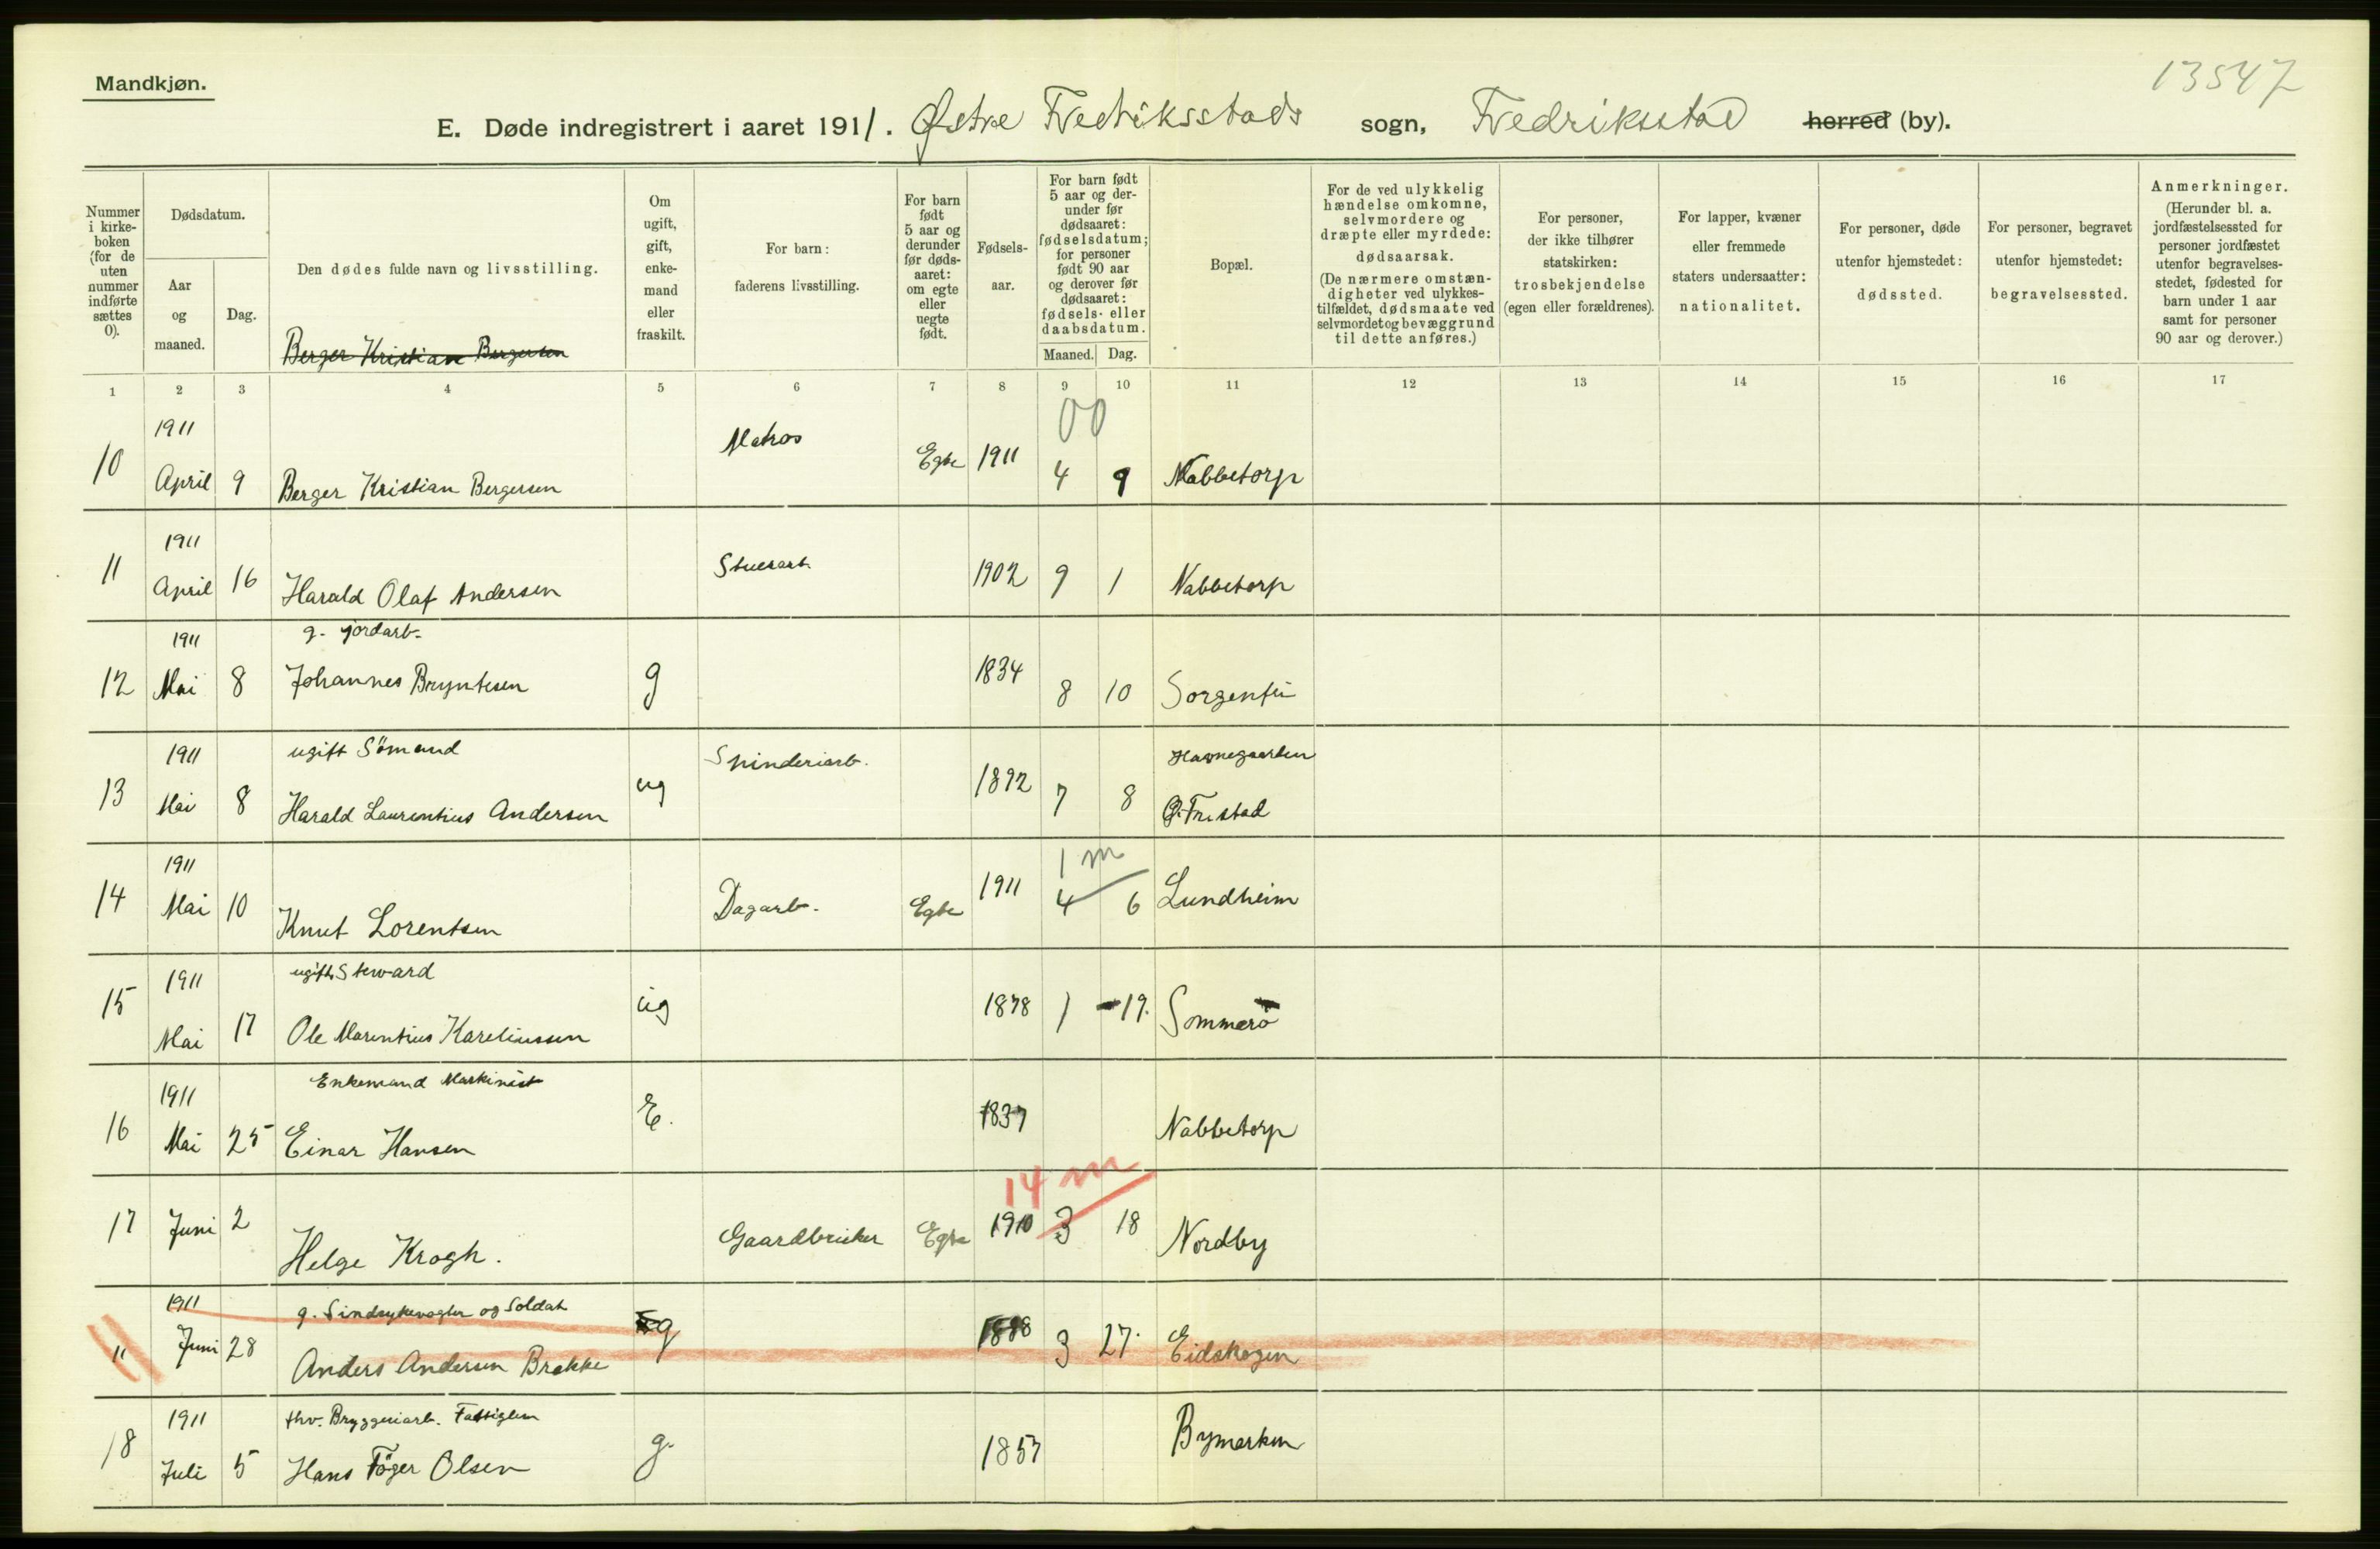 Mandkjøn.
13547
E. Døde indregistrert i aaret 1911. Østre Fredriksstads sogn, Fredriksstad herred (by).
Nummer i kirkeboken (for de uten nummer indførte sættes 0).
Dødsdatum.
Aar og maaned.
Dag.
Den dødes fulde navn og livsstilling.
Berger Kristian Bergersen
Om ugift, gift, enkemand eller fraskilt.
For barn: faderens livsstilling.
For barn født 5 aar og derunder før dødsaaret: om egte eller uegte født.
Fødselsaar.
For barn født 5 aar og derunder før dødsaaret: fødselsdatum; for personer født 90 aar og derover før dødsaaret: fødsels- eller daabsdatum.
Maaned. Dag.
Bopæl.
For de ved ulykkelig hændelse omkomne, selvmordere og dræpte eller myrdede: dødsaarsak.
(De nærmere omstændigheter ved ulykkestilfældet, dødsmaate ved selvmordet og bevæggrund til dette anføres.)
For personer, der ikke tilhører statskirken: trosbekjendelse (egen eller forældrenes).
For lapper, kvæner eller fremmede staters undersaatter: nationalitet.
For personer, døde utenfor hjemstedet: dødssted.
For personer, begravet utenfor hjemstedet: begravelsessted.
Anmerkninger.
(Herunder bl. a. jordfæstelsessted for personer jordfæstet utenfor begravelsesstedet, fødested for barn under 1 aar samt for personer 90 aar og derover.)
1 2 3 4 5 6 7 8 9 10 11 12 13 14 15 16 17
1911 Matros 00
10 April 9 Berger Kristian Bergersen Egte 1911 4 9 Nabbetorp
1911 Stuerarb.
11 April 16 Harald Olaf Andersen 1902 9 1 Nabbetorp
1911 g. jordarb.
12 Mai 8 Johannes Bryntesen g 1834 8 10 Sorgenfri
1911 ugift Sömand Spinderiarb. Havnegaarden
13 Mai 8 Harald Laurentius Andersen ug 1892 7 8 Ø. Fr.stad
1911 1 m
14 Mai 10 Knut Lorentsen Dagarb. Egte 1911 4 6 Lundheim
1911 ugift Steward
15 Mai 17 Ole Marentius Kareliussen ug 1878 1 19. Sommerö
1911 Enkemand Maskinist
16 Mai 25 Einar Hansen E. 1837 Nabbetorp
14 m
17 Juni 2 Helge Krogh. Gaardbruker Egte 1910 3 18 Nordby
1911 g. Sindsykevogter og Soldat
" Juni 28 Anders Andersen Brekke g 1888 3 27. Eidskogen
1911 fhv. Bryggeriarb. Fattiglem
18 Juli 5 Hans Töger Olsen g. 1857 Bymarken